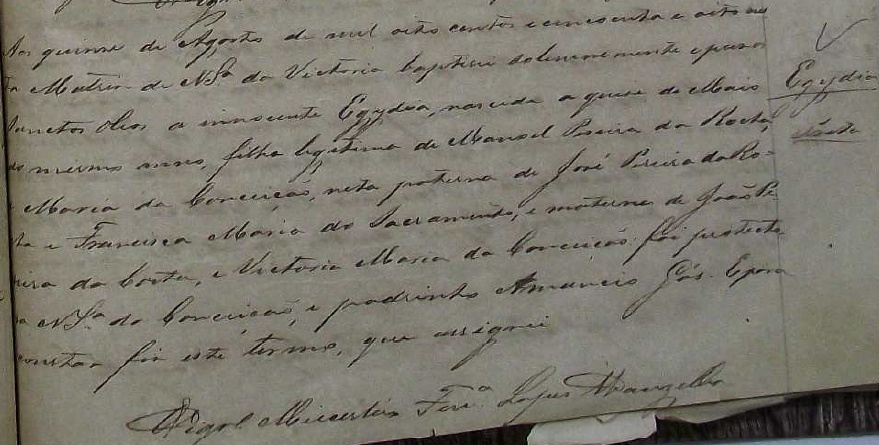 Aos quinze de Agosto de mil oito centos e cincoenta e oito
Matriz de N Sª da Victoria baptisei solemnemente e puz os
Sanctos Oleos a innocente Egydia, nascida a quise de Maio
do mesmo anno, filha legitima de Manoel Pereira da Rocha,
e Maria da Conceição, neta paterna de José Pereira da Ro-
cha e Francisca Maria do Sacramento, e materna de João Pe-
reira da Costa, e Victoria Maria da Conceição foi protecto
ra N Sª da Conceição, e padrinho Amancio Góis. E para
constar fiz este termo, que assignei
Ferrª Lopes
Egydia